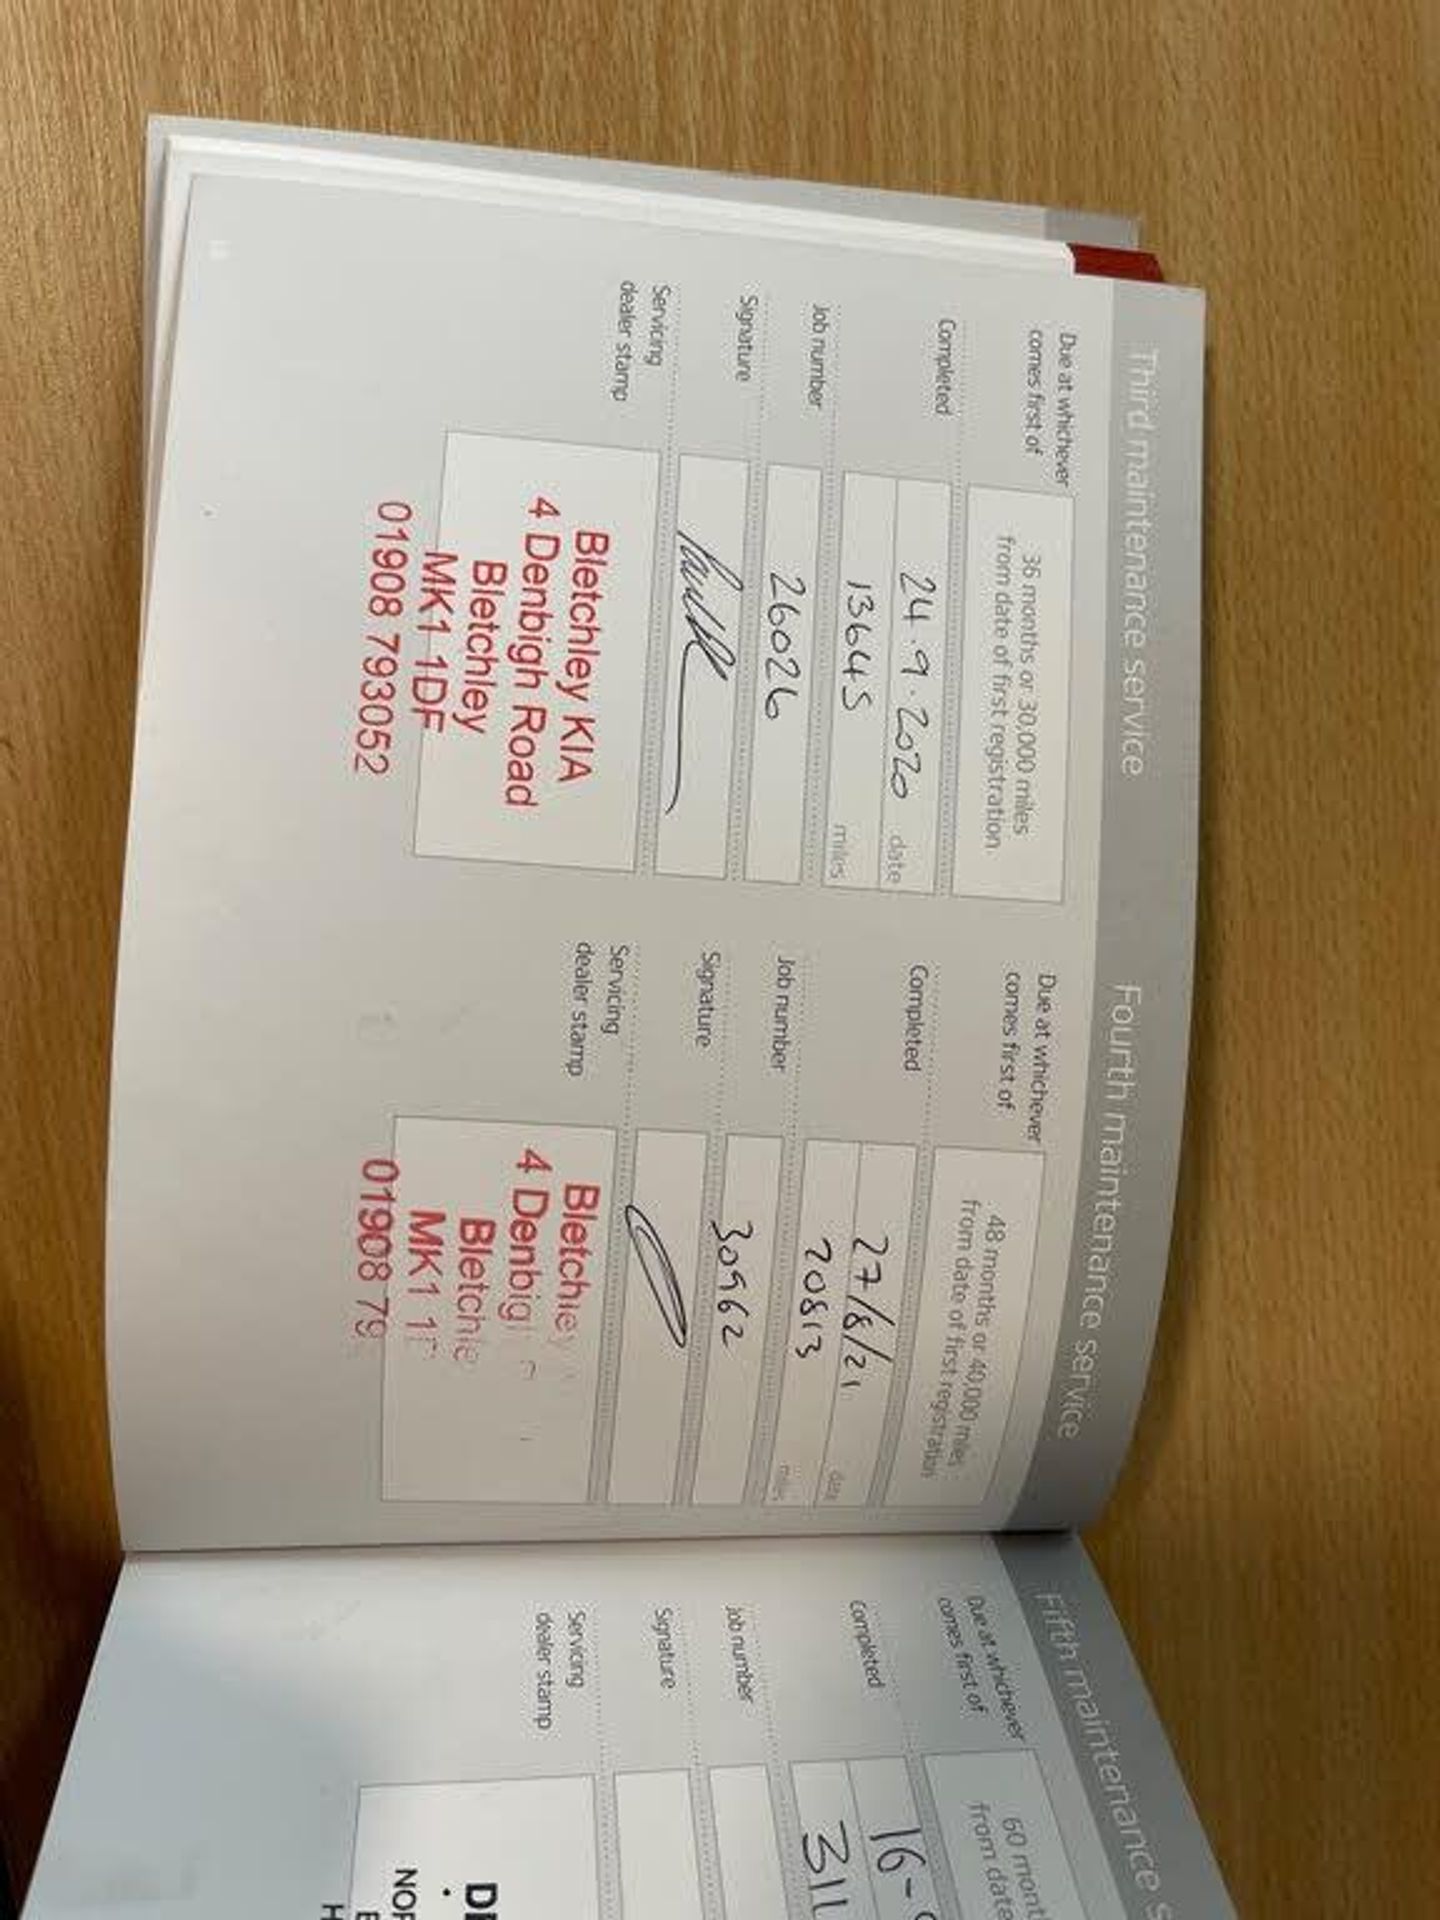 Third maintenance service
Due at whichever
comes first of
36 months or 30,000 miles
from date of first registration.
Completed
24.9.2020 date
13645 miles
Job number
26026
Signature
Servicing
dealer stamp
Bletchley KIA
4 Denbigh Road
Bletchley
MK1 1DF
01908 793052
Fourth maintenance service
Due at whichever
comes first of
48 months or 40,000 miles
from date of first registration
Completed
27/8/21 date
20813 miles
Job number
30962
Signature
Servicing
dealer stamp
Bletchley
4 Denbig
Bletchle
MK1 1
01908 79
Fifth maintenance s
Due at whichever
comes first of
60 mont
from date
Completed
16-
311
Job number
Signature
Servicing
dealer stamp
NOR